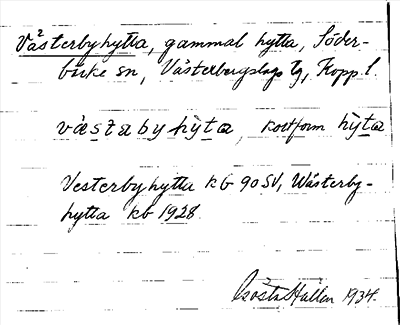 Västerbyhytta, gammal hytta, Söder-
bärke sn, Västerbergslags tg, Kopp. l.
västabyhỳta, kortform hỳta
Vesterbyhytta kb 90 SV, Wästerby-
hytta kb 1928.
Gösta Hallen 1934.